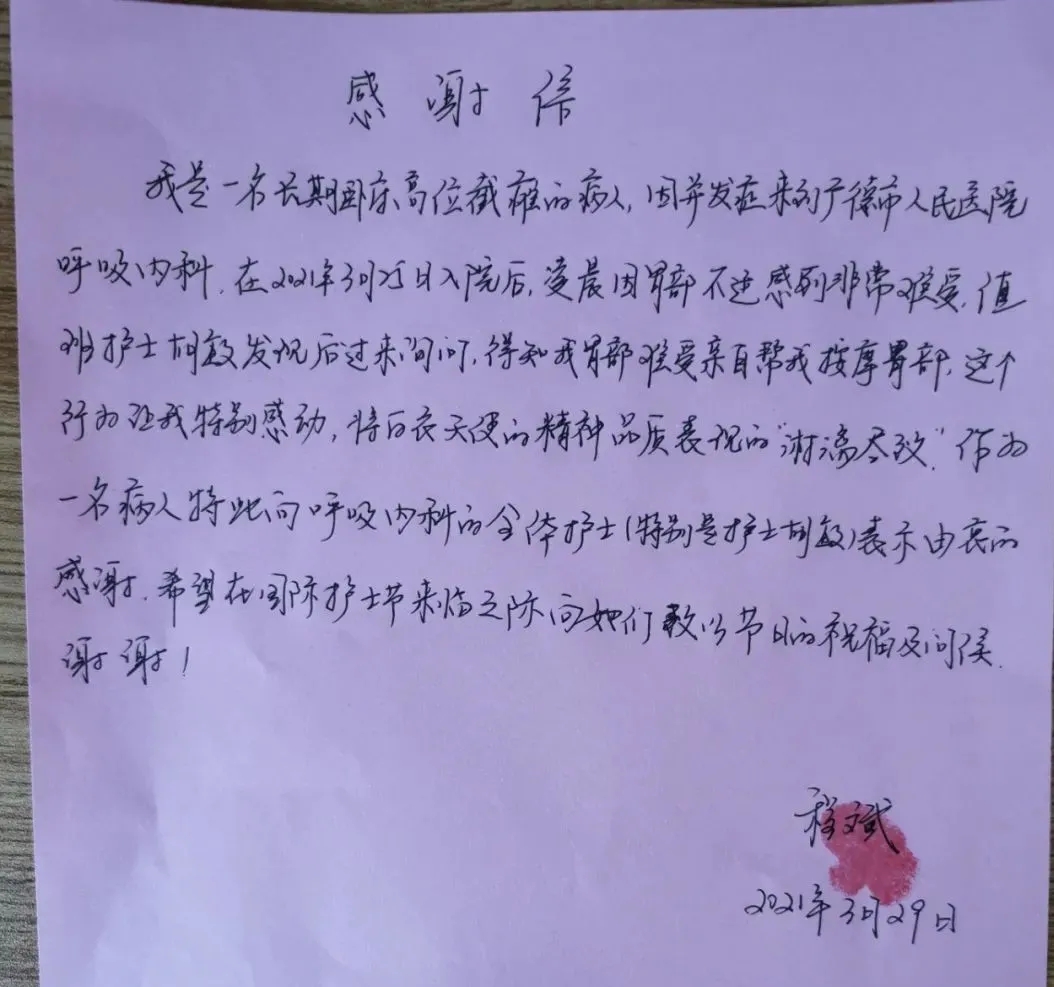 感谢信
我是一名长期卧床高位截瘫的病人,因并发症来到广德市人民医院
呼吸内科.在2021年3月25日入院后,凌晨因胃部不适感到非常难受.值
班护士胡敏发现后过来询问,得知我胃部难受亲自帮我按摩胃部.这个
行为让我特别感动,将白衣天使的精神品质表现的"淋漓尽致".作为
一名病人特此向呼吸内科的全体护士(特别是护士胡敏)表示由衷的
感谢.希望在国际护士节来临之际向她们致以节日的祝福及问侯.
谢谢!
程斌
2021年3月29日